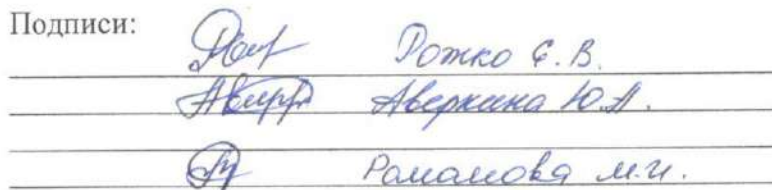 Подписи:
Рожко Е. В.
Аверкина Ю. А.
Романова М. И.